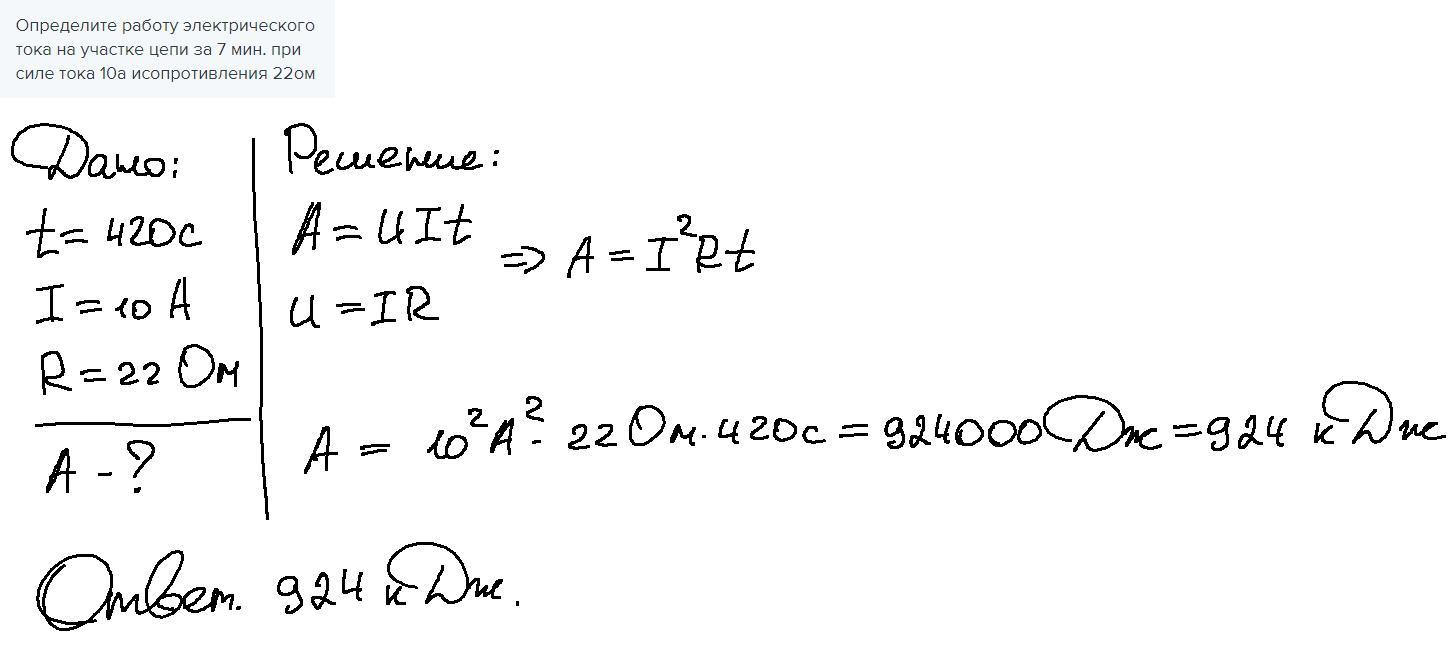 Определите работу электрического
тока на участке цепи за 7 мин. при
силе тока 10а исопротивления 22ом
Дано:
t = 420с
I = 10 А
R = 22 Ом
А - ?
Решение:
A = UIt
U = IR
=> A = I²Rt
A = 10²А² · 22 Ом · 420с = 924000 Дж = 924 кДж
Ответ. 924 кДж.